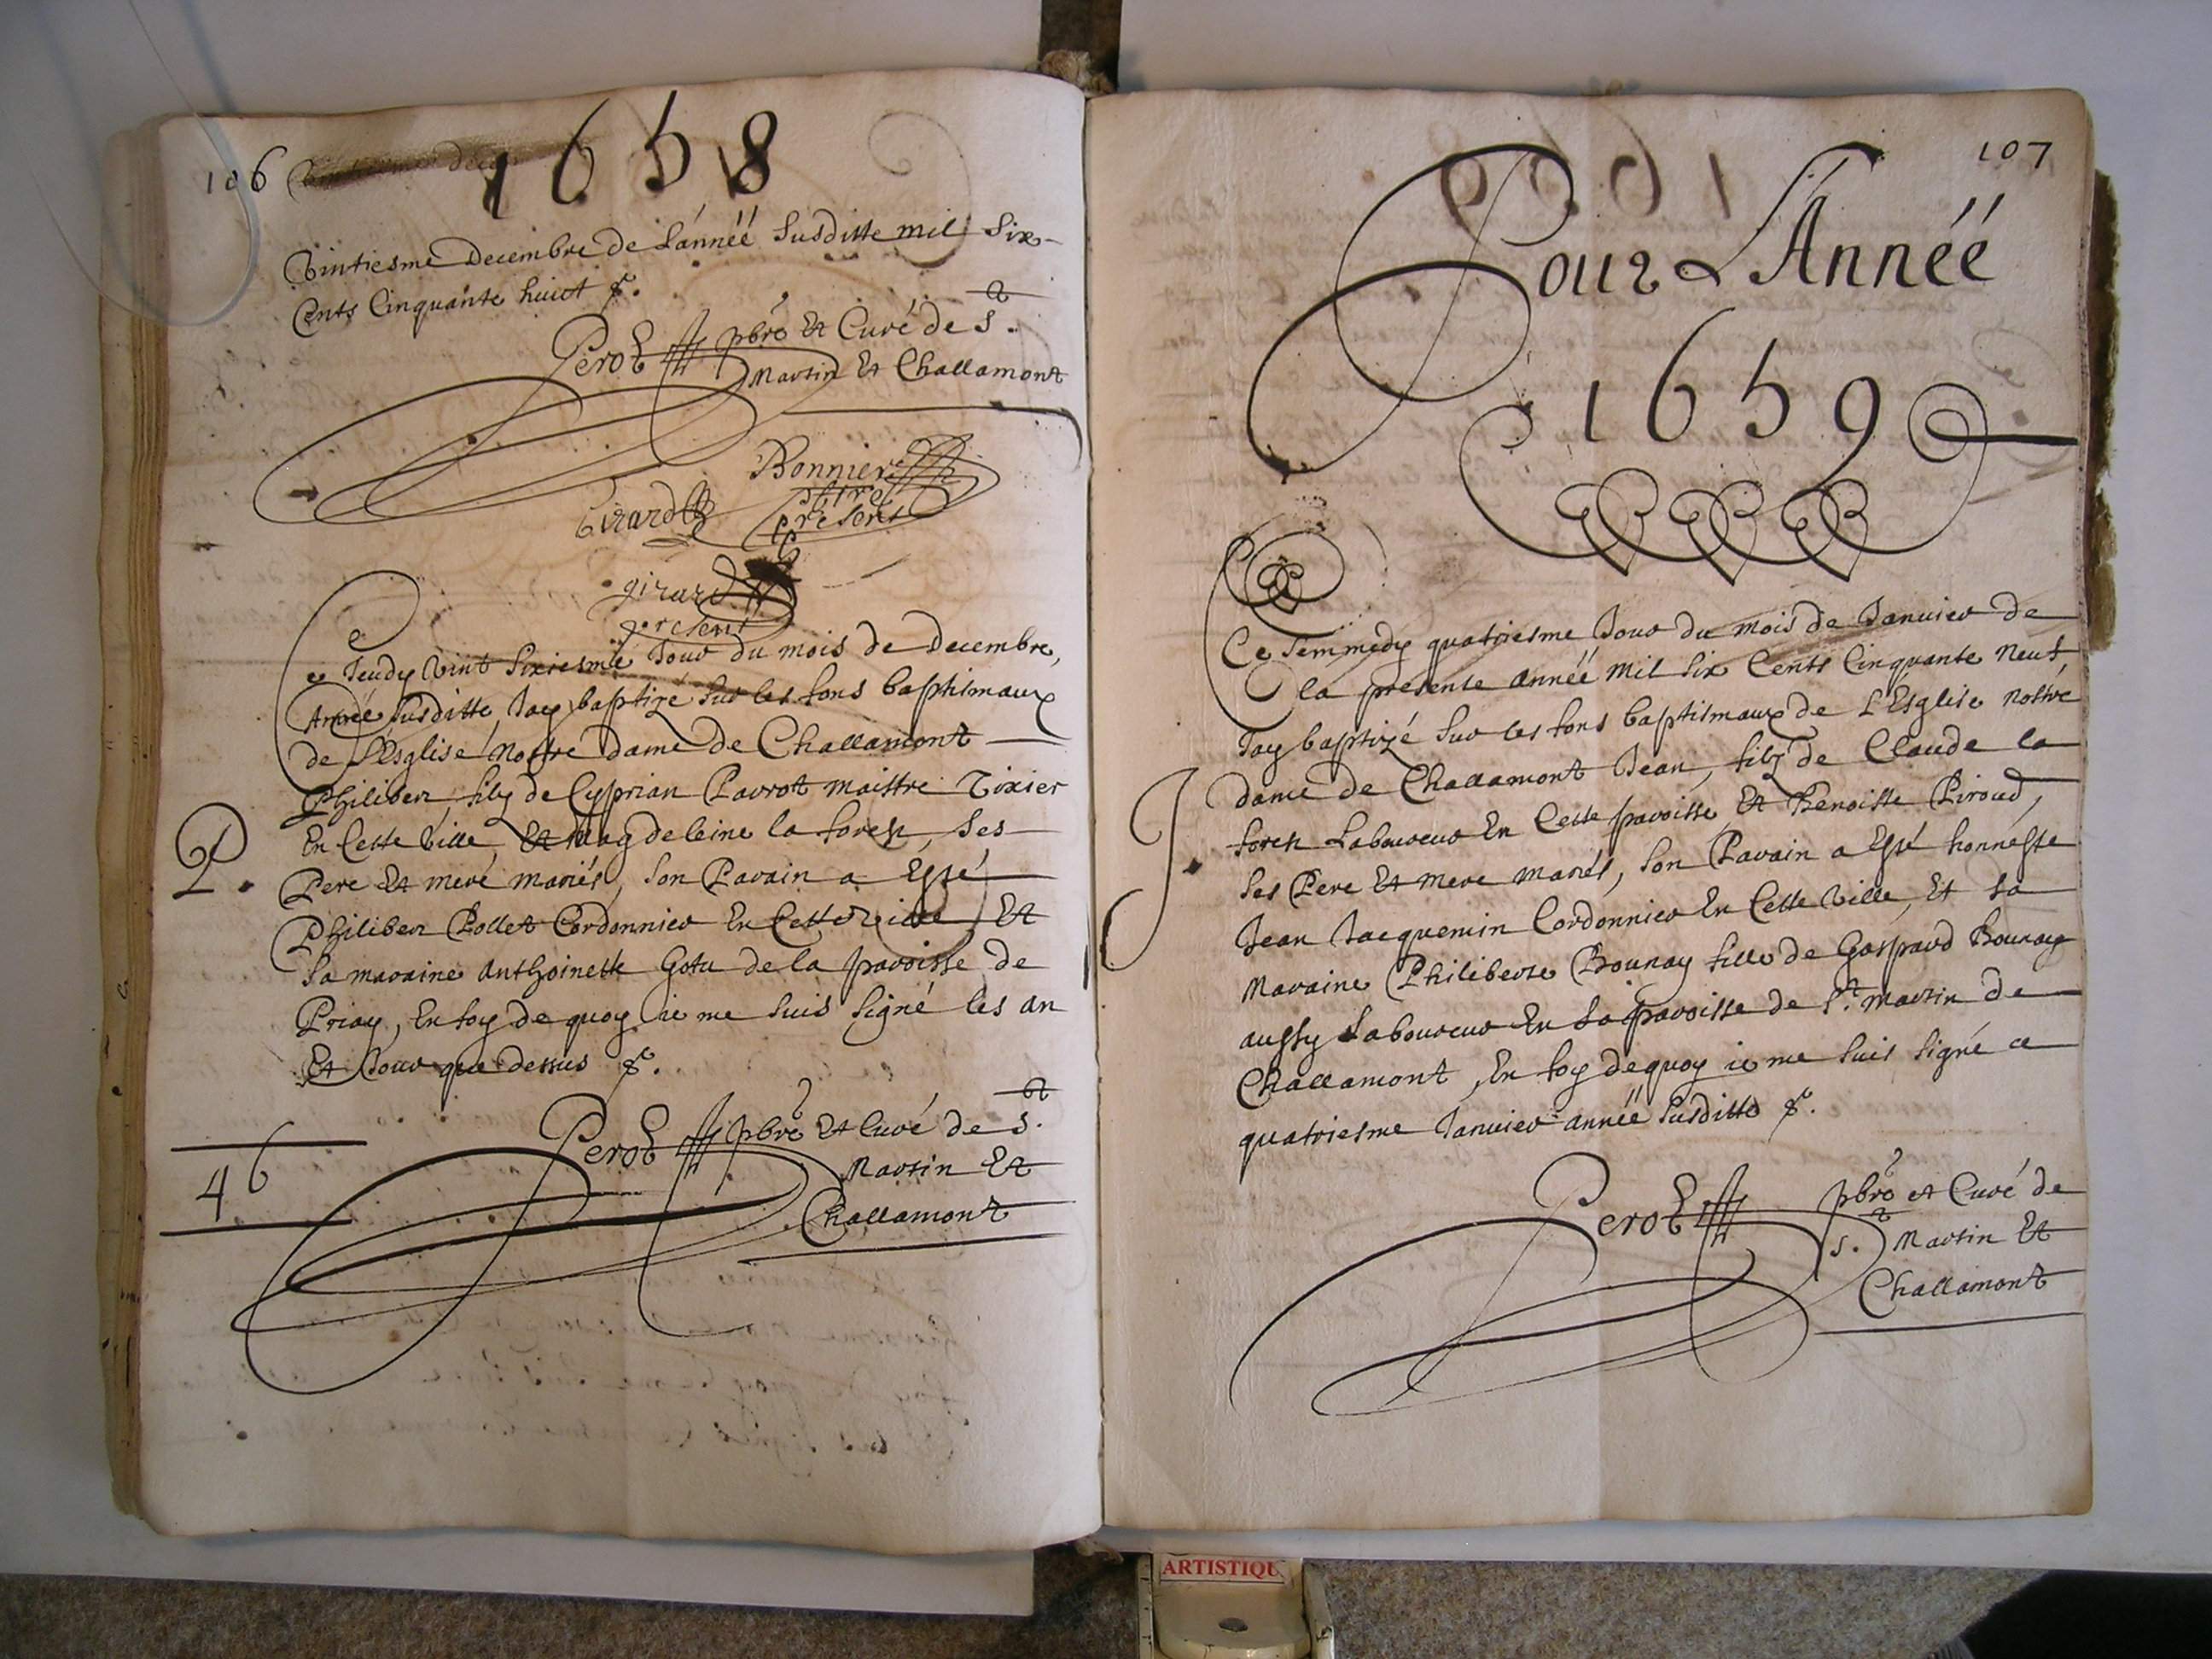 106
1658
Vintiesme Decembre de L'annéé Susditte mil Six
Cents Cinquante huict &.
Perot pbre Et Curé de St.
Martin Et Challamont
Bonnier
present
Girard
girard
present
Ce Jeudy Vint Sixiesme Jour du mois de Decembre,
Année Susditte, Jay baptizé Sur les fons baptismaux
de L'Esglise Nostre dame de Challamont
Philiber, filz de Cyprian Parrot maistre Tixier
En Cette Ville, Et Magdeleine la forest, Ses
Pere Et mere mariés, Son Parain a Esté
Philiber Pollet Cordonnier En Cette Ville, Et
Sa maraine Anthoinette Gotu de la parroisse de
Priay, En foy de quoy ie me suis Signé les an
Et Jour que dessus &.
P.
Perot pbre Et Curé de St.
Martin Et
Challamont
46
107
Pour L'Annéé
1659
Ce Semmedy quatriesme Jour du mois de Januier de
la presente annéé Mil Six Cents Cinquante Neuf,
Jay baptizé Sur les fons baptismaux de L'Esglise Nostre
dame de Challamont Jean, filz de Claude la
forest Laboureur En Cette parroisse Et Benoiste Piroud,
Ses Pere Et Mere Mariés, Son Parain a Esté honneste
Jean Jacquemin Cordonnier En Cette Ville, Et Sa
Maraine Philiberte Bounay fille de Gaspard Bounay
aussy Laboureur En La parroisse de St. Martin de
Challamont, En foy dequoy ie me suis Signé ce
quatriesme Januier annéé Susditte &.
J.
Perot pbre et Curé de
St. Martin Et
Challamont
ARTISTIQU